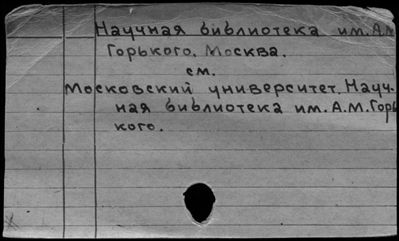 Научная библиотека им. А.М
Горького. Москва.
см.
Московский университет. Науч-
ная библиотека им. А.М. Горь
кого.